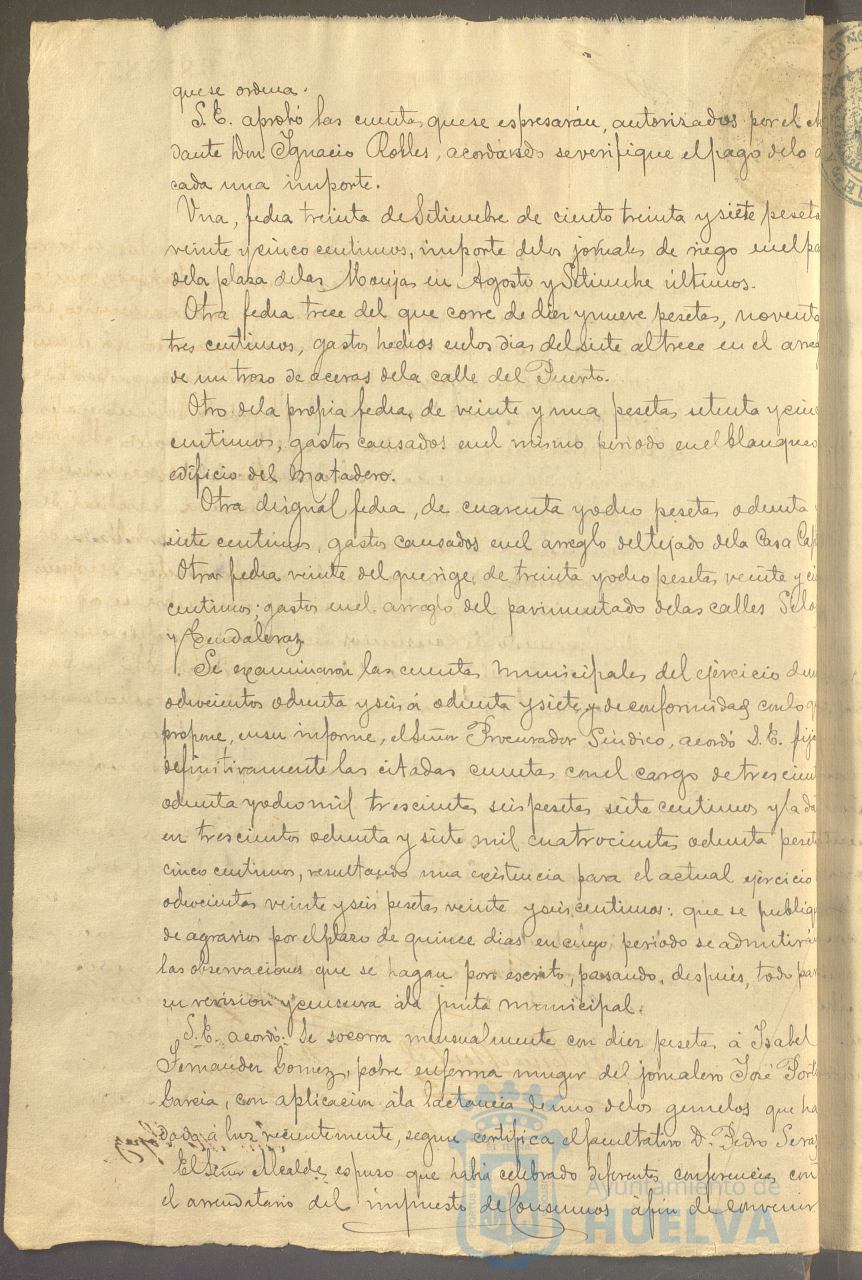 que se ordena.
S.E. aprobó las cuentas que se espresarán, autorizados por el
dante Don Ignacio Robles, acordando se verifique el pago de lo
cada una importe.
Una, fecha treinta de Setiembre de ciento treinta y siete peseta
veinte y cinco centimos, importe de los jornales de riego en el pa
de la plaza de las Monjas en Agosto y Setiembre últimos.
Otra fecha trece del que corre de diez y nueve pesetas, noventa
tres centimos, gastos hechos en los dias del siete al trece en el arreg
de un trozo de aceras de la calle del Puerto.
Otro de la propia fecha, de veinte y una pesetas setenta y cinc
centimos, gastos causados en el mismo periodo en el blanqueo
edificio del Matadero.
Otra de igual fecha, de cuarenta y ocho pesetas ochenta y
siete centimos, gastos causados en el arreglo del tejado de la Casa Capi
Otra fecha veinte del que rige, de treinta y ocho pesetas veinte y ci
centimos; gastos en el arreglo del pavimentado de las calles
y Hendaleraz
Se examinaron las cuentas municipales del ejercicio de
ochocientos ochenta y seis á ochenta y siete, y de conformidad con lo q
propone, en su informe, el Señor Procurador Sindico, acordó S.E. fija
definitivamente las citadas cuentas con el cargo de trescien
ochenta y ocho mil trescientas seis pesetas siete centimos y la da
en trescientos ochenta y siete mil cuatrocientas ochenta peseta
cinco centimos, resultando una existencia para el actual ejercicio
ochocientas veinte y seis pesetas veinte y seis centimos: que se publiq
de agravios por el plazo de quince dias en cuyo periodo se admitirán
las observaciones que se hagan por escrito, pasando, despues, todo para
su revision y censura á la junta municipal.
S.E. acordó: Se socorra mensualmente con diez pesetas á Isabel
Fernandez Gomez, pobre enferma muger del jornalero José
Garcia, con aplicacion á la lactancia de uno de los gemelos que ha
dado á luz recientemente, segun certifica el facultativo D. Pedro
El Señor Alcalde, espuso que habia celebrado diferentes conferencias con
el arrendatario del impuesto de Consumos afin de convenir
Ayuntamiento de
HUELVA